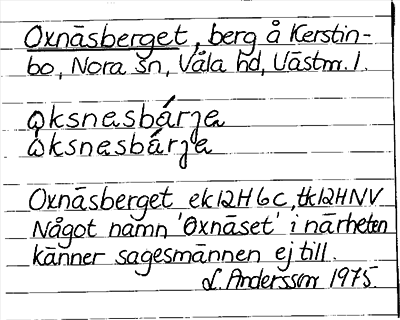 Oxnäsberget, berg å Kerstin-
bo, Nora sn, Våla hd, Västm. l.
oksnesbárja
oksnesbárja
Oxnäsberget ek 12H 6c, tk 12H NV
Något namn 'Oxnäset' i närheten
känner sagesmännen ej till.
L. Andersson 1975